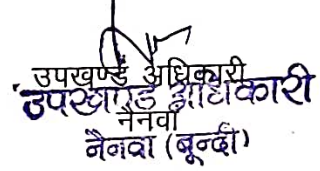 उपखण्ड अधिकारी
उपखण्ड अधिकारी
नैनवाँ
नैनवा (बून्दी)